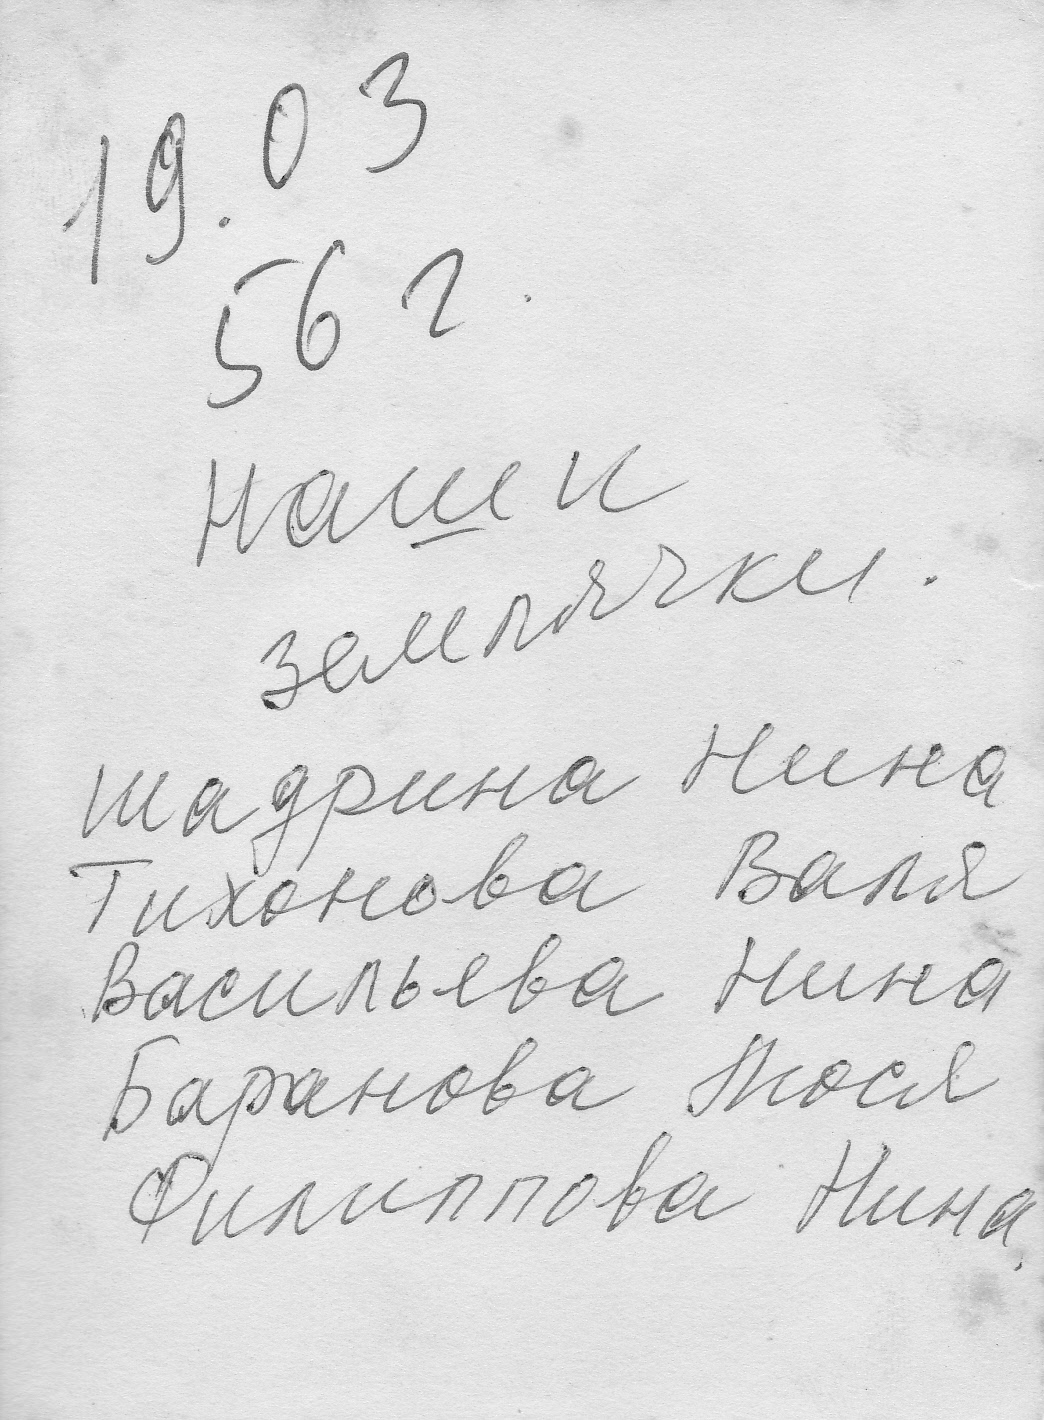 19.03
56 г.
Наши
землячки.
Шадрина Нина
Тихонова Валя
Васильева Нина
Баранова Люся
Филиппова Нина.